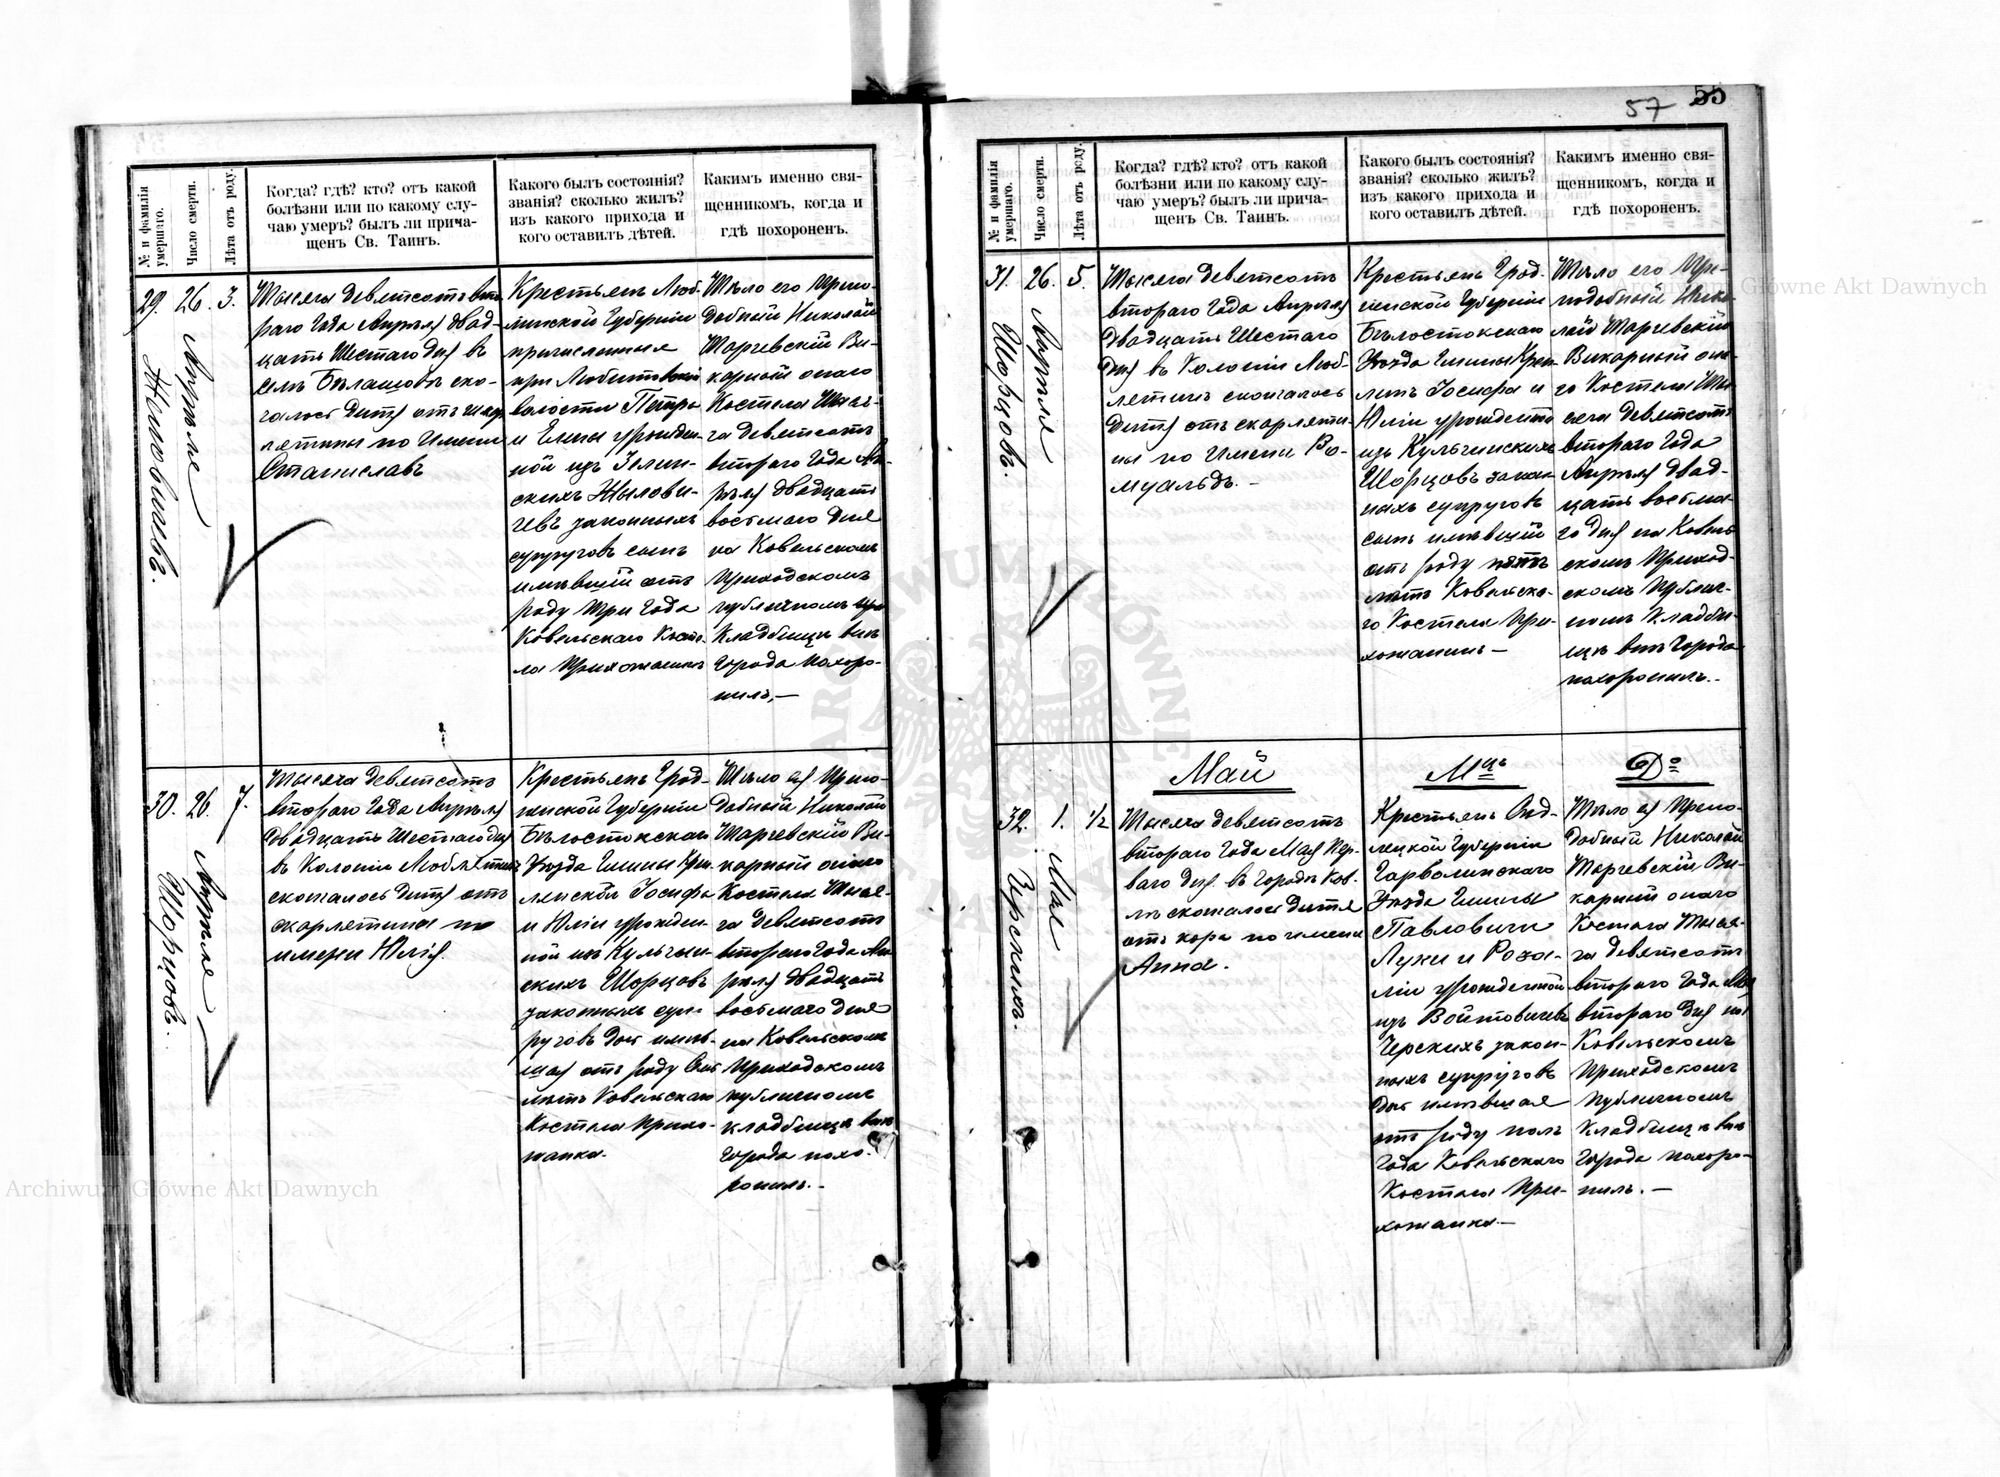 57 55
№ и фамилія умершаго.
Число смерти.
Лѣта отъ роду.
Когда? гдѣ? кто? отъ какой
болѣзни или по какому слу-
чаю умеръ? былъ ли прича-
щенъ Св. Таинъ.
Какого былъ состоянія?
званія? сколько жилъ?
изъ какого прихода и
кого оставилъ дѣтей.
Какимъ именно свя-
щенникомъ, когда и
гдѣ похороненъ.
29.
Жиловичевъ.
26.
Апрѣля
3.
Тысяча девятсотъ вто-
раго Года Апрѣля двад-
цать Шестаго дня въ
селѣ Бѣлашовъ ско-
чалось дитя отъ скар-
летины по Имени
Станиславъ
Крестьянъ Люб-
линской Губерніи
причисленныя
при Любитовской
волости Петра
и Елены урожден-
ной изъ
скихъ Жылови-
чевъ законныхъ
супруговъ сынъ
имѣвшій отъ
роду Три Года
Ковельскаго Косте-
ла Прихожанинъ
Тѣло его Препо-
добный Николай
Шаргевскій Ви-
карный онаго
Костела Тыся-
ча девятсотъ
втораго Года Ап-
рѣля двадцать
восьмаго дня
на Ковельскомъ
Приходскомъ
публичномъ
Кладбищѣ внѣ
Города похоро-
нилъ.—
30.
Шорцовъ.
26.
Апрѣля
7.
Тысяча девятсотъ
втораго Года Апрѣля
двадцать Шестаго дня
въ Колоніи Люблятинъ
скончалось дитя отъ
скарлетины по
имени Юлія.
Крестьянъ Грод-
ненской Губерніи
Бѣлостокскаго
Уѣзда Гмины Кры-
пинской Іосифа
и Юліи урожден-
ной изъ Кульчин-
скихъ Шорцовъ
законныхъ суп-
руговъ дочь имѣв-
шая отъ роду Семь
лѣтъ Ковельскаго
Костела Прихо-
жанка.
Тѣло ея Препо-
добный Николай
Шаргевскій Ви-
карный онаго
Костела Тыся-
ча девятсотъ
втораго Года Ап-
рѣля двадцать
восьмаго дня
на Ковельскомъ
Приходскомъ
публичномъ
кладбищѣ внѣ
Города похо-
ронилъ.—
№ и фамилія умершаго.
Число смерти.
Лѣта отъ роду.
Когда? гдѣ? кто? отъ какой
болѣзни или по какому слу-
чаю умеръ? былъ ли прича-
щенъ Св. Таинъ.
Какого былъ состоянія?
званія? сколько жилъ?
изъ какого прихода и
кого оставилъ дѣтей.
Какимъ именно свя-
щенникомъ, когда и
гдѣ похороненъ.
31.
Шорцовъ.
26.
Апрѣля
5.
Тысяча девятсотъ
втораго Года Апрѣля
двадцать Шестаго
дня въ Колоніи Люб-
лятинъ скончалось
дитя отъ скарлети-
ны по Имени Ро-
муальдъ.—
Крестьянъ Грод-
ненской Губерніи
Бѣлостокскаго
Уѣзда Гмины Кры-
пинъ Іосифа и
Юліи урожденной
изъ Кульчинскихъ
Шорцовъ закон-
ныхъ супруговъ
сынъ имѣвшій
отъ роду пять
лѣтъ Ковельска-
го Костела При-
хожанинъ—
Тѣло его Пре-
подобный Нико-
лай Шаргевскій
Викарный она-
го Костела Ты-
сяча девятсотъ
втораго Года
Апрѣля двад-
цать восьма-
го дня на Ковель-
скомъ Приход-
скомъ Публич-
номъ Кладби-
щѣ внѣ Города
похоронилъ.—
Май Мцъ До
32.
Черскихъ.
1.
Мая
½
Тысяча девятсотъ
втораго Года Мая Пер-
ваго дня въ Городѣ Ков-
лѣ скончалось дитя
отъ кора по имени
Анна.
Крестьянъ Сѣд-
лецкой Губерніи
Гарволинскаго
Уѣзда Гмины
Павловичи
Луки и Роза-
ліи урожденной
изъ Войтовичевъ
Черскихъ закон-
ныхъ супруговъ
дочь имѣвшая
отъ роду полъ
Года Ковельскаго
Костела При-
хожанка—
Тѣло ея Препо-
добный Николай
Шаргевскій Ви-
карный онаго
Костела Тыся-
ча девятсотъ
втораго Года Мая
втораго дня на
Ковельскомъ
Приходскомъ
Публичномъ
Кладбищѣ внѣ
Города похоро-
нилъ.—
Archiwum Główne Akt Dawnych
Archiwum Główne Akt Dawnych
ARCHIWUM GŁÓWNE AKT